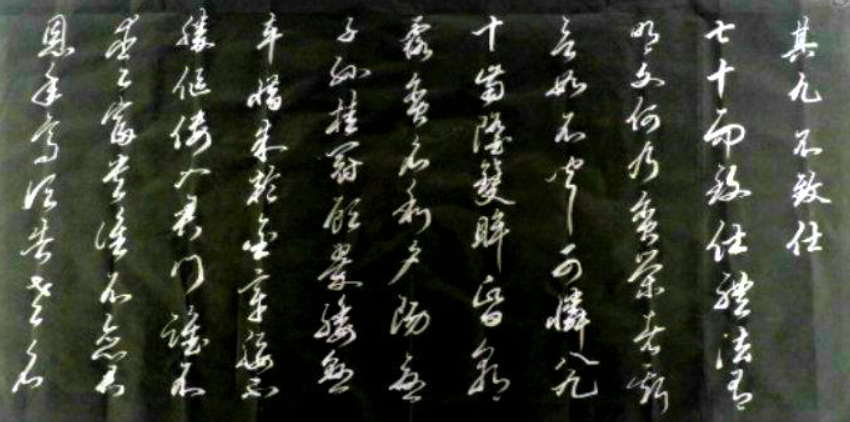 其九 不致仕
七十而致仕禮法有
明文何乃貪榮者斯
言如不聞可憐八九
十齒墮雙眸昏朝
露貪名利夕陽憂
子孫挂冠顧翠緌懸
車惜朱輪金章腰不
勝傴僂入君門誰不
愛富貴誰不戀君
恩年高須告老名